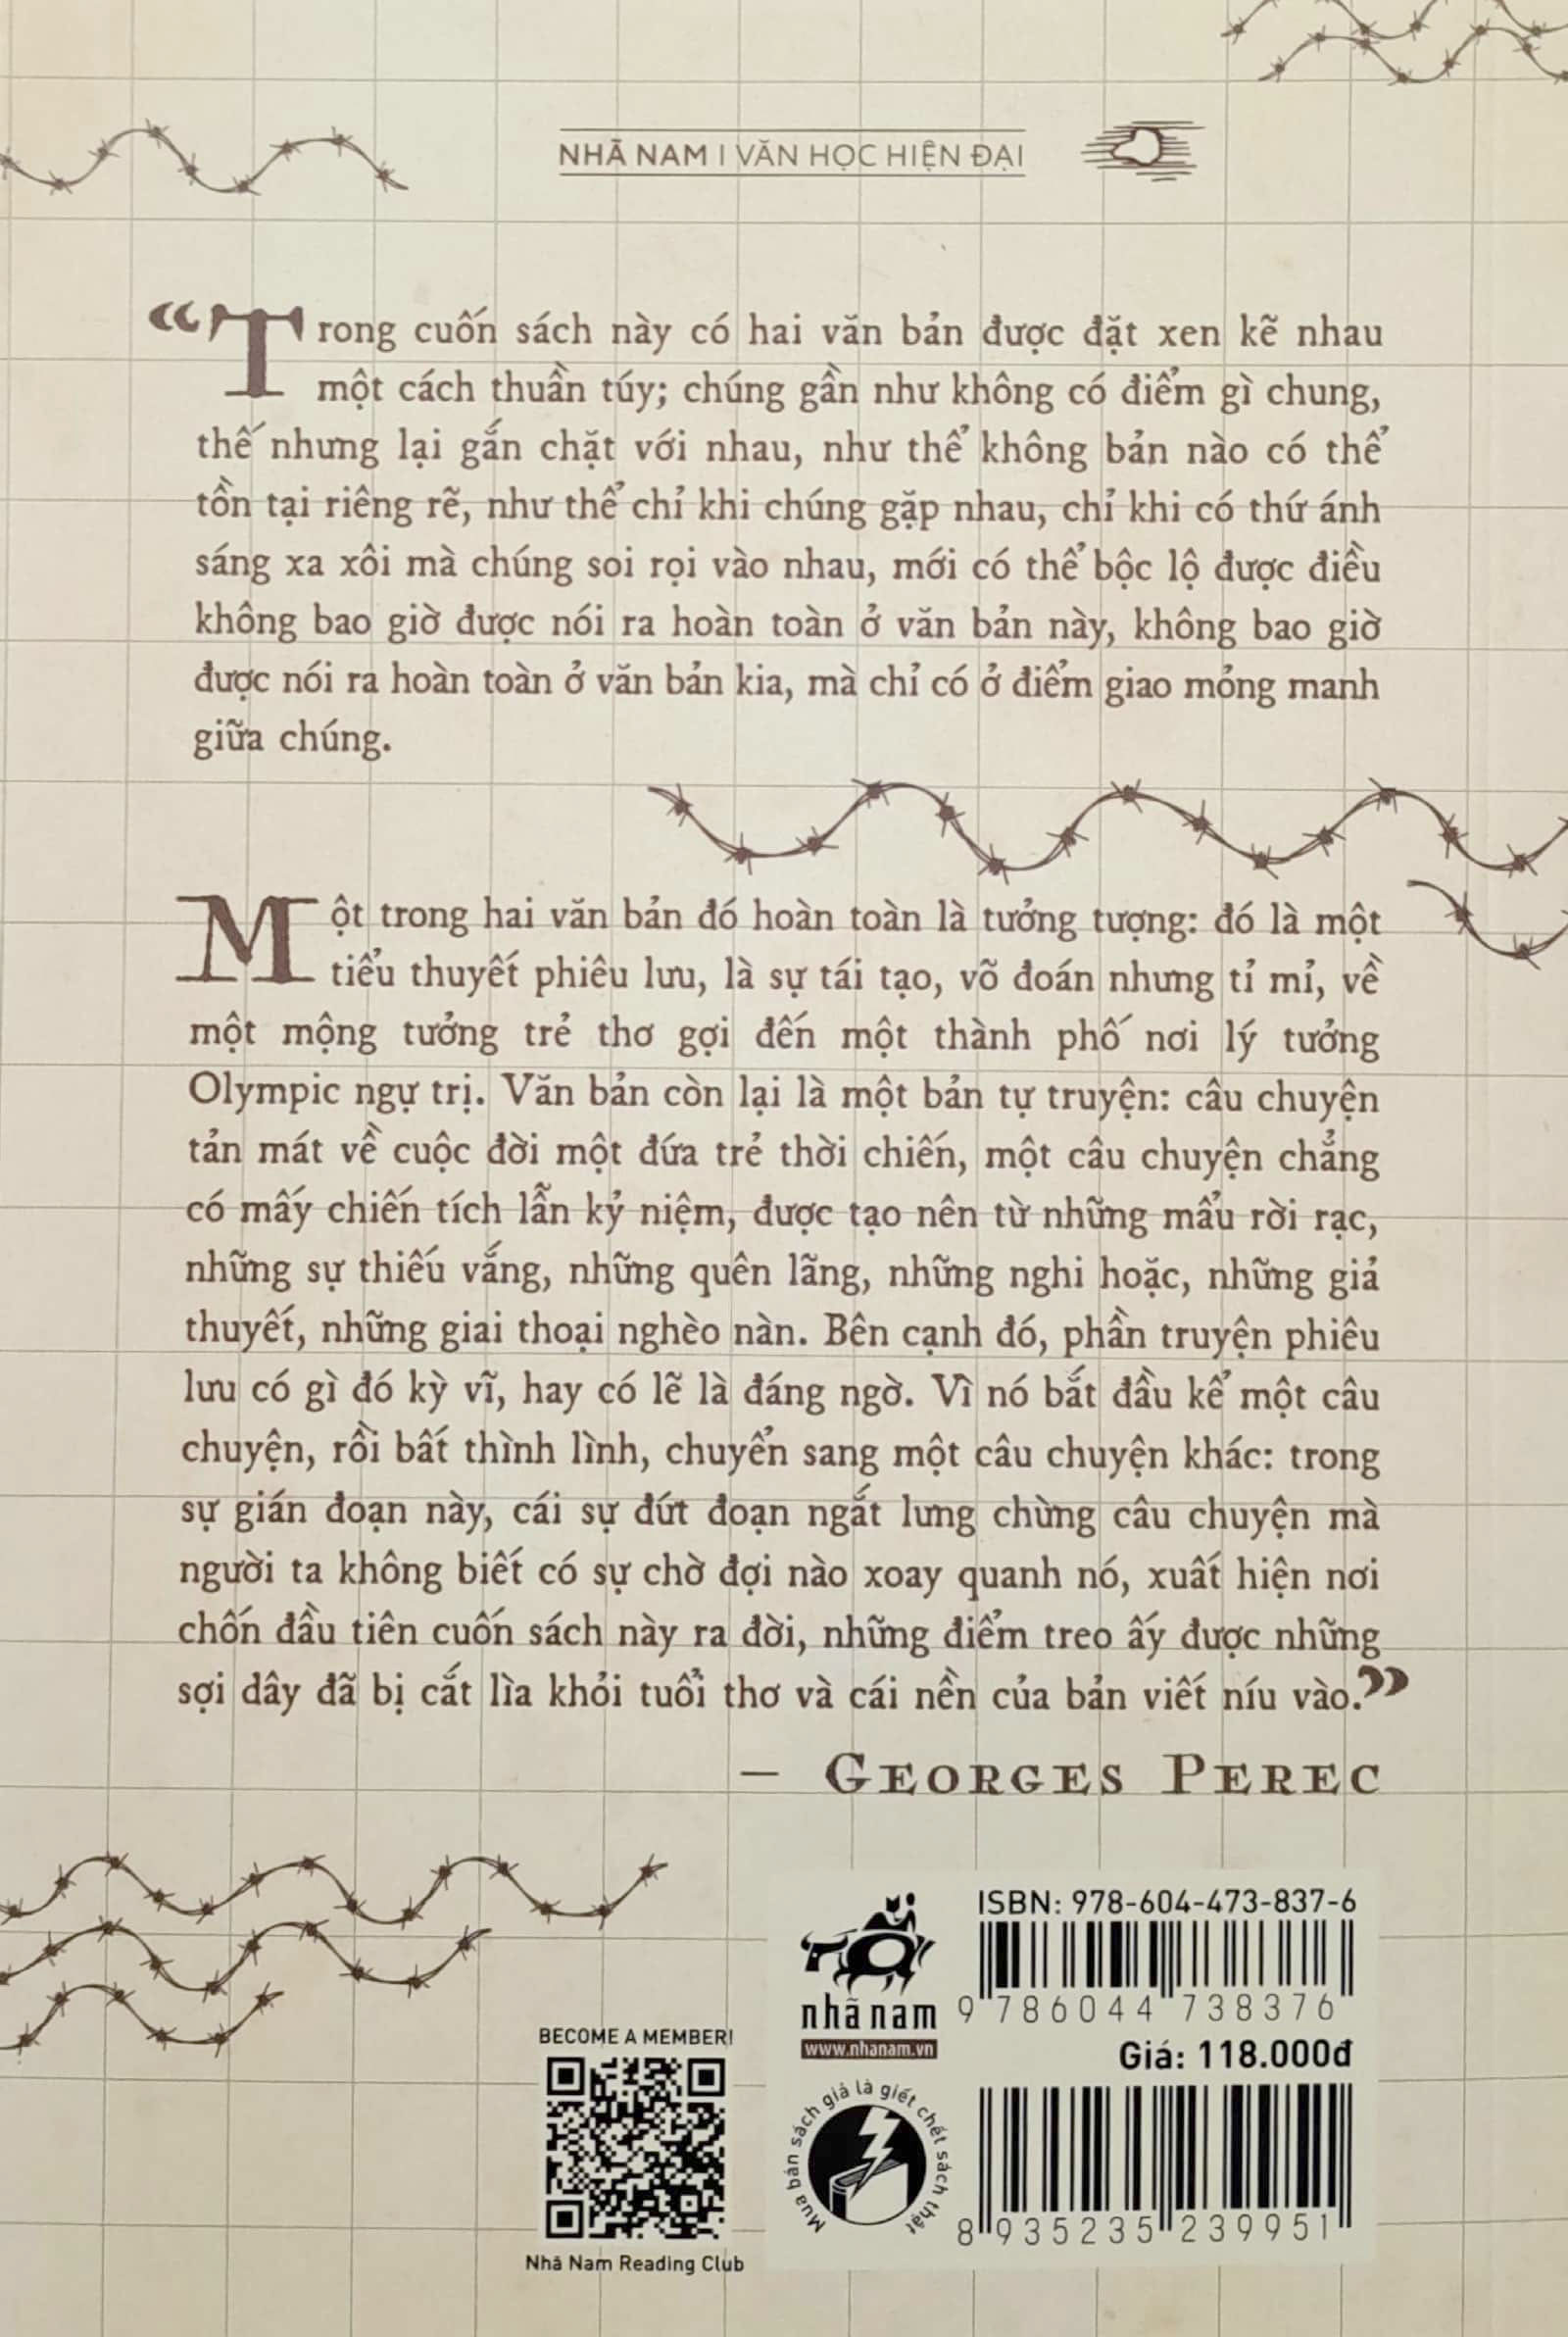 NHÃ NAM | VĂN HỌC HIỆN ĐẠI
“Trong cuốn sách này có hai văn bản được đặt xen kẽ nhau
một cách thuần túy; chúng gần như không có điểm gì chung,
thế nhưng lại gắn chặt với nhau, như thể không bản nào có thể
tồn tại riêng rẽ, như thể chỉ khi chúng gặp nhau, chỉ khi có thứ ánh
sáng xa xôi mà chúng soi rọi vào nhau, mới có thể bộc lộ được điều
không bao giờ được nói ra hoàn toàn ở văn bản này, không bao giờ
được nói ra hoàn toàn ở văn bản kia, mà chỉ có ở điểm giao mỏng manh
giữa chúng.
Một trong hai văn bản đó hoàn toàn là tưởng tượng: đó là một
tiểu thuyết phiêu lưu, là sự tái tạo, võ đoán nhưng tỉ mỉ, về
một mộng tưởng trẻ thơ gợi đến một thành phố nơi lý tưởng
Olympic ngự trị. Văn bản còn lại là một bản tự truyện: câu chuyện
tản mát về cuộc đời một đứa trẻ thời chiến, một câu chuyện chẳng
có mấy chiến tích lẫn kỷ niệm, được tạo nên từ những mẩu rời rạc,
những sự thiếu vắng, những quên lãng, những nghi hoặc, những giả
thuyết, những giai thoại nghèo nàn. Bên cạnh đó, phần truyện phiêu
lưu có gì đó kỳ vĩ, hay có lẽ là đáng ngờ. Vì nó bắt đầu kể một câu
chuyện, rồi bất thình lình, chuyển sang một câu chuyện khác: trong
sự gián đoạn này, cái sự đứt đoạn ngắt lưng chừng câu chuyện mà
người ta không biết có sự chờ đợi nào xoay quanh nó, xuất hiện nơi
chốn đầu tiên cuốn sách này ra đời, những điểm treo ấy được những
sợi dây đã bị cắt lìa khỏi tuổi thơ và cái nền của bản viết níu vào.”
— GEORGES PEREC
BECOME A MEMBER!
Nhã Nam Reading Club
nhã nam
www.nhanam.vn
Mua bán sách giả là giết chết sách thật
ISBN: 978-604-473-837-6
9 786044 738376
Giá: 118.000đ
8 935235 239951